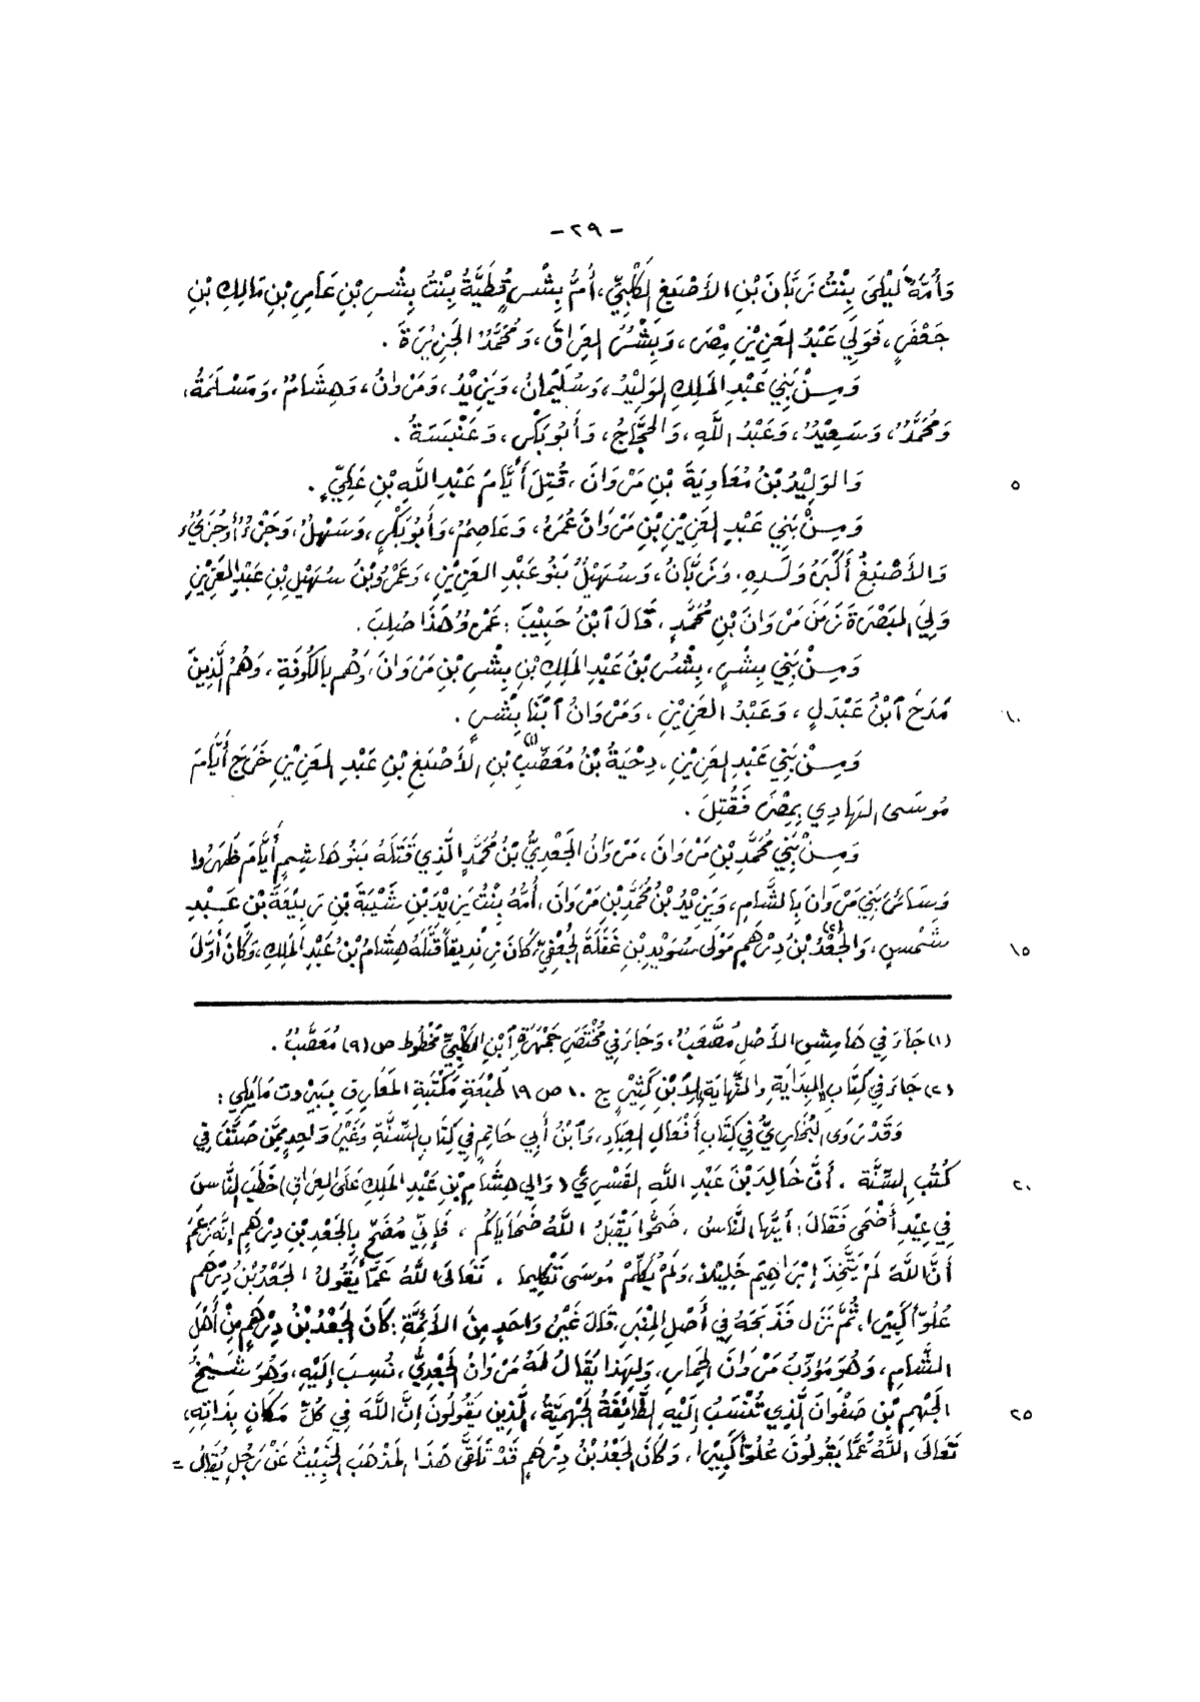 - ٢٩ -
وَأُمُّهُ لَيْلَى بِنْتُ زَبَّانَ بْنِ الأَصْبَغِ الكَلْبِيِّ، أُمُّ بِشْرٍ قُطَيَّةُ بِنْتُ بِشْرِ بْنِ عَامِرِ بْنِ مَالِكِ بْنِ
جَعْفَرٍ، فَوَلِيَ عَبْدُ العَزِيْزِ مِصْرَ، وَبِشْرٌ العِرَاقَ، وَمُحَمَّدٌ الجَزِيْرَةَ .
وَمِنْ بَنِي عَبْدِ المَلِكِ الوَلِيْدُ، وَسُلَيْمَانُ، وَيَزِيْدُ، وَمَرْوَانُ، وَهِشَامٌ، وَمَسْلَمَةُ،
وَمُحَمَّدٌ، وَسَعِيْدٌ، وَعَبْدُ اللَّهِ، وَالحَجَّاجُ، وَأَبُو بَكْرٍ، وَعَنْبَسَةُ .
٥ وَالوَلِيْدُ بْنُ مُعَاوِيَةَ بْنِ مَرْوَانَ، قُتِلَ أَيَّامَ عَبْدِ اللَّهِ بْنِ عَلِيٍّ .
وَمِنْ بَنِي عَبْدِ العَزِيْزِ بْنِ مَرْوَانَ عُمَرُ، وَعَاصِمٌ، وَأَبُو بَكْرٍ، وَسَهْلٌ، وَجَزْءٌ أَوْ جُزَيْءٌ
وَالأَصْبَغُ أَكْبَرُ وَلَدِهِ، وَزَبَّانُ، وَسُهَيْلٌ بَنُو عَبْدِ العَزِيْزِ، وَعَمْرُو بْنُ سُهَيْلِ بْنِ عَبْدِ العَزِيْزِ
وَلِيَ البَصْرَةَ زَمَنَ مَرْوَانَ بْنِ مُحَمَّدٍ، قَالَ ابْنُ حَبِيْبَ : عَمْرٌو هَذَا صُلِبَ .
وَمِنْ بَنِي بِشْرٍ، بِشْرُ بْنُ عَبْدِ المَلِكِ بْنِ بِشْرِ بْنِ مَرْوَانَ، وَهُم بِالكُوفَةِ، وَهُمُ الَّذِينَ
١٠ مَدَحَ ابْنُ عَبْدَلٍ، وَعَبْدُ العَزِيْزِ، وَمَرْوَانُ ابْنَا بِشْرٍ .
وَمِنْ بَنِي عَبْدِ العَزِيْزِ، دِحْيَةُ بْنُ مُعَصَّبِ (١) بْنِ الأَصْبَغِ بْنِ عَبْدِ العَزِيْزِ خَرَجَ أَيَّامَ
مُوسَى الهَادِي بِمِصْرَ فَقُتِلَ .
وَمِنْ بَنِي مُحَمَّدِ بْنِ مَرْوَانَ، مَرْوَانُ الجَعْدِيُّ بْنُ مُحَمَّدٍ الَّذِي قَتَلَهُ بَنُو هَاشِمٍ أَيَّامَ ظَهَرُوا
وَسَائِرُ بَنِي مَرْوَانَ بِالشَّامِ، وَيَزِيْدُ بْنُ مُحَمَّدِ بْنِ مَرْوَانَ، أُمُّهُ بِنْتُ يَزِيْدَ بْنِ شَيْبَةَ بْنِ رَبِيْعَةَ بْنِ عَبْدِ
١٥ شَمْسٍ، وَالجَعْدُ (٢) بْنُ دِرْهَمٍ مَوْلَى سُوَيْدِ بْنِ غَفَلَةَ الجُعْفِيِّ، كَانَ زِنْدِيقاً قَتَلَهُ هِشَامُ بْنُ عَبْدِ المَلِكِ، وَكَانَ أَوَّلَ
(١) جَاءَ فِي هَامِشِ الأَصْلِ مُصْعَبٌ، وَجَاءَ فِي مُخْتَصَرِ جَمْهَرَةِ ابْنِ الكَلْبِيِّ مَخْطُوط ص (٩) مُعَصَّبٌ .
(٢) جَاءَ فِي كِتَابِ البِدَايَةِ وَالنِّهَايَةِ لِابْنِ كَثِيْرٍ ج ١٠ ص ١٩ طَبْعَةِ مَكْتَبَةِ المَعَارِفِ بِبَيْرُوتَ مَا يَلِي :
وَقَدْ رَوَى البُخَارِيُّ فِي كِتَابِ أَفْعَالِ العِبَادِ، وَابْنُ أَبِي حَاتِمٍ فِي كِتَابِ السُّنَّةِ وَغَيْرُ وَاحِدٍ مِمَّن صَنَّفَ فِي
٢٠ كُتُبِ السُّنَّةِ . أَنَّ خَالِدَ بْنَ عَبْدِ اللَّهِ القَسْرِيَّ (وَالِي هِشَامِ بْنِ عَبْدِ المَلِكِ عَلَى العِرَاقِ) خَطَبَ النَّاسَ
فِي عِيْدِ أَضْحَى فَقَالَ : أَيُّهَا النَّاسُ، ضَحُّوا يَقْبَلُ اللَّهُ ضَحَايَاكُم، فَإِنِّي مُضَحٍّ بِالجَعْدِ بْنِ دِرْهَمٍ إِنَّهُ زَعَمَ
أَنَّ اللَّهَ لَمْ يَتَّخِذْ إِبْرَاهِيْمَ خَلِيْلاً، وَلَمْ يُكَلِّمْ مُوسَى تَكْلِيما، تَعَالَى اللَّهُ عَمَّا يَقُولُ الجَعْدُ بْنُ دِرْهَمٍ
عُلُوّاً كَبِيْراً، ثُمَّ نَزَلَ فَذَبَحَهُ فِي أَصْلِ المِنْبَرِ، قَالَ غَيْرُ وَاحِدٍ مِنَ الأَئِمَّةِ : كَانَ الجَعْدُ بْنُ دِرْهَمٍ مِنْ أَهْلِ
الشَّامِ، وَهُوَ مُؤَدِّبُ مَرْوَانَ الحِمَارِ، وَلِهَذَا يُقَالُ لَهُ مَرْوَانُ الجَعْدِيُّ، نُسِبَ إِلَيْهِ، وَهُوَ شَيْخُ
٢٥ الجَهْمِ بْنِ صَفْوَانَ الَّذِي تُنْسَبُ إِلَيْهِ الطَّائِفَةُ الجَهْمِيَّةُ، الَّذِينَ يَقُولُونَ إِنَّ اللَّهَ فِي كُلِّ مَكَانٍ بِذَاتِهِ،
تَعَالَى اللَّهُ عَمَّا يَقُولُونَ عُلُوّاً كَبِيْراً، وَكَانَ الجَعْدُ بْنُ دِرْهَمٍ قَدْ تَلَقَّى هَذَا المَذْهَبَ الخَبِيْثَ عَنْ رَجُلٍ يُقَالُ =